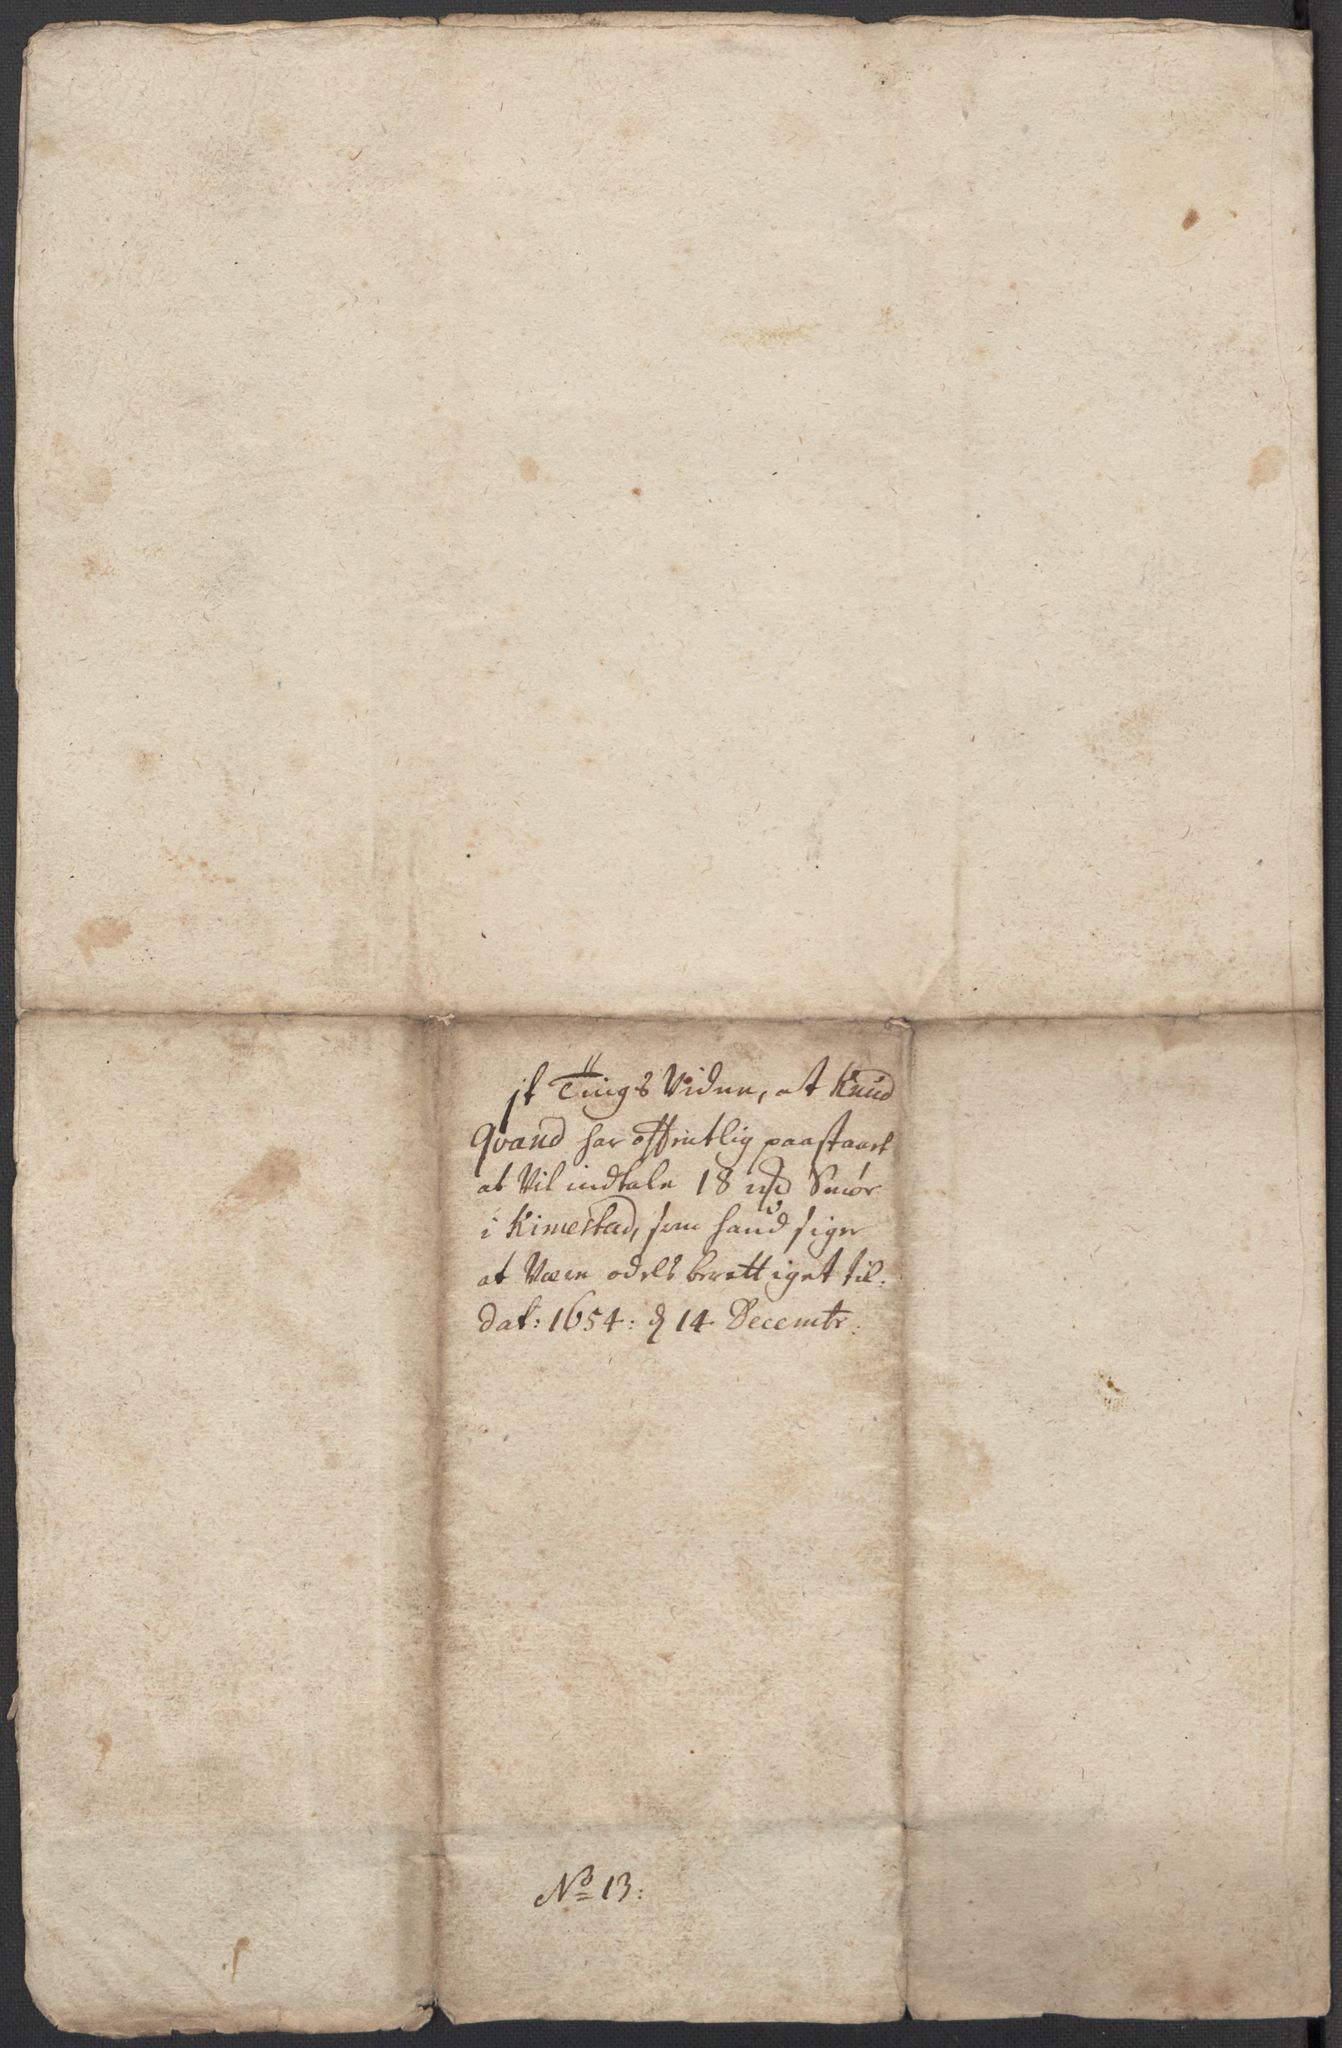 jt Tings Vidne, at Knud
Qvand har offentlig paastaaet
at Vil indtale 18 Smör
i Kimestad, som hand siger
at Være odels berettiget til.
Dat: 1654: d 14 Decembr.
No 13: